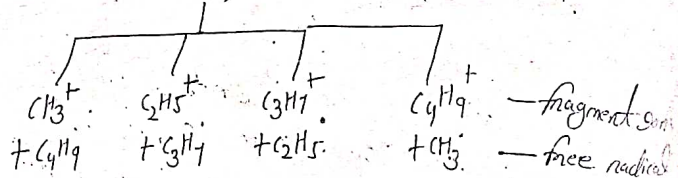 CH3+ C2H5+ C3H7+ C4H9+ — fragment ion
+ C4H9• + C3H7• + C2H5• + CH3• — free radical